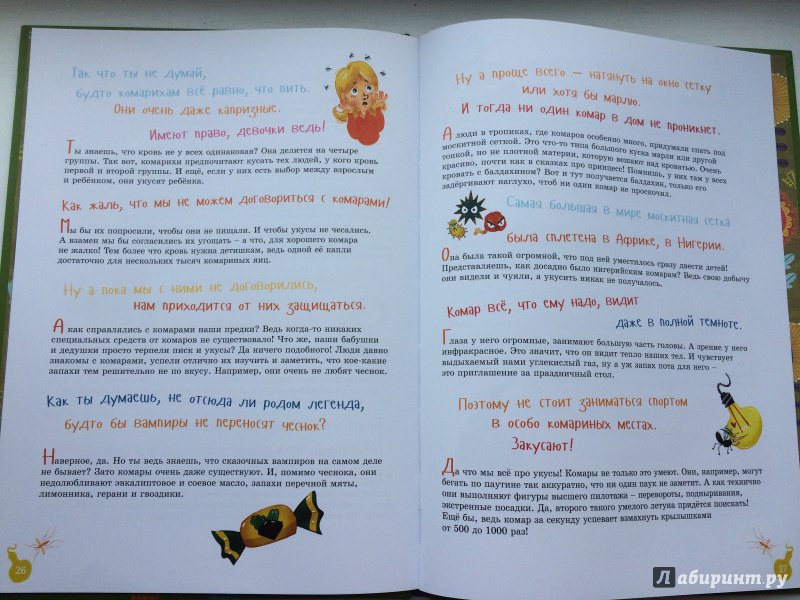 Так что ты не думай,
будто комарихам всё равно, что пить.
Они очень даже капризные.
Имеют право, девочки ведь!
Ты знаешь, что кровь не у всех одинаковая? Она делится на четыре
группы. Так вот, комарихи предпочитают кусать тех людей, у кого кровь
первой и второй группы. И ещё, если у них есть выбор между взрослым
и ребёнком, они укусят ребёнка.
Как жаль, что мы не можем договориться с комарами!
Мы бы их попросили, чтобы они не пищали. И чтобы укусы не чесались.
А взамен мы бы согласились их угощать – а что, для хорошего комара
не жалко! Тем более что кровь нужна детишкам, ведь одной её капли
достаточно для нескольких тысяч комариных яиц.
Ну а пока мы с ними не договорились,
нам приходится от них защищаться.
А как справлялись с комарами наши предки? Ведь когда-то никаких
специальных средств от комаров не существовало! Что же, наши бабушки
и дедушки просто терпели писк и укусы? Да ничего подобного! Люди давно
знакомы с комарами, успели отлично их изучить и заметить, что кое-какие
запахи тем решительно не по вкусу. Например, они очень не любят чеснок.
Как ты думаешь, не отсюда ли родом легенда,
будто бы вампиры не переносят чеснок?
Наверное, да. Но ты ведь знаешь, что сказочных вампиров на самом деле
не бывает? Зато комары очень даже существуют. И, помимо чеснока, они
недолюбливают эвкалиптовое и соевое масло, запахи перечной мяты,
лимонника, герани и гвоздики.
26
Ну а проще всего – натянуть на окно сетку
или хотя бы марлю.
И тогда ни один комар в дом не проникнет.
А люди в тропиках, где комаров особенно много, придумали спать под
москитной сеткой. Это что-то типа большого куска марли или другой
тонкой, но не плотной материи, которую вешают над кроватью. Очень
красиво, почти как в сказках про принцесс! Помнишь, у них там у всех
кровать с балдахином? Вот и тут получается балдахин, только его
задёргивают наглухо, чтоб ни один комар не проскочил.
Самая большая в мире москитная сетка
была сплетена в Африке, в Нигерии.
Она была такой огромной, что под ней уместилось сразу двести детей!
Представляешь, как досадно было нигерийским комарам? Ведь свою добычу
они видели и чуяли, а укусить никак не получалось.
Комар всё, что ему надо, видит
даже в полной темноте.
Глаза у него огромные, занимают большую часть головы. А зрение у него
инфракрасное. Это значит, что он видит тепло наших тел. И чувствует
выдыхаемый нами углекислый газ, ну а уж запах пота для него –
это приглашение за праздничный стол.
Поэтому не стоит заниматься спортом
в особо комариных местах.
Закусают!
Да что мы всё про укусы! Комары не только это умеют. Они, например, могут
бегать по паутине так аккуратно, что ни один паук не заметит. А как технично
они выполняют фигуры высшего пилотажа – перевороты, подныривания,
экстренные посадки. Да, второго такого умелого летуна придётся поискать!
Ещё бы, ведь комар за секунду успевает взмахнуть крылышками
от 500 до 1000 раз!
27
Лабиринт.ру